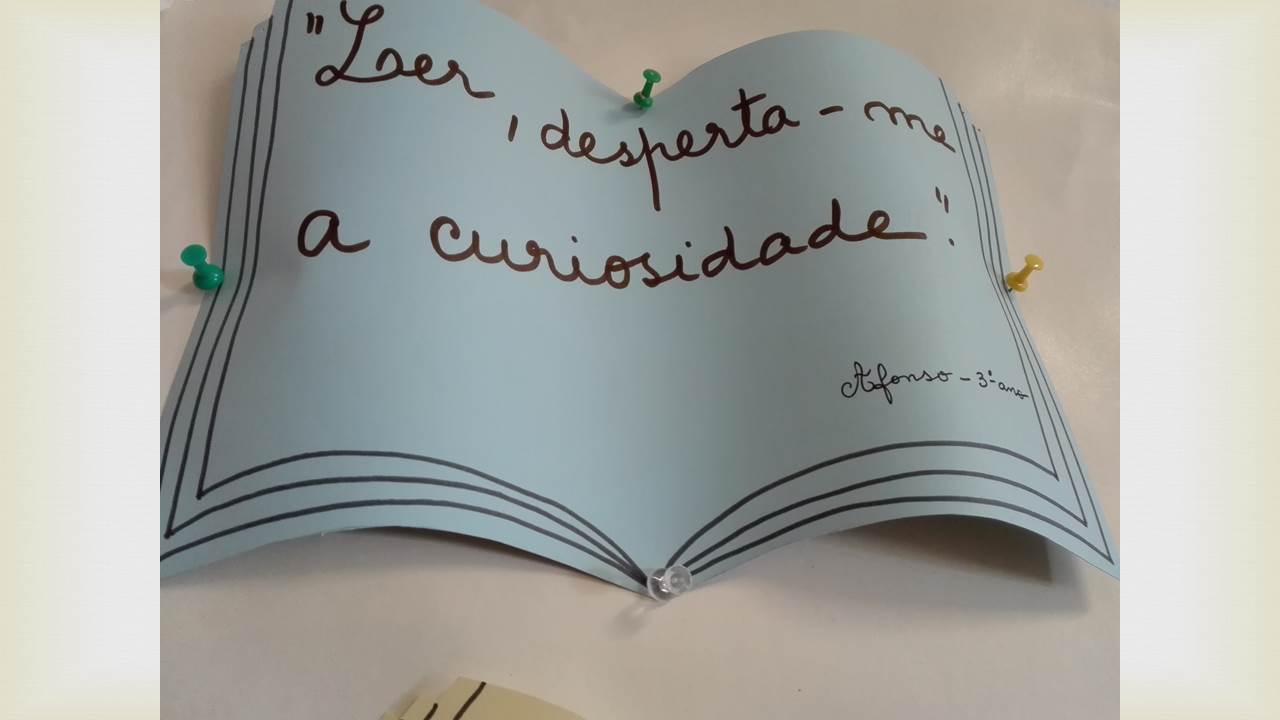 "Ler
, desperta-me
a curiosidade".
Afonso - 3º ano